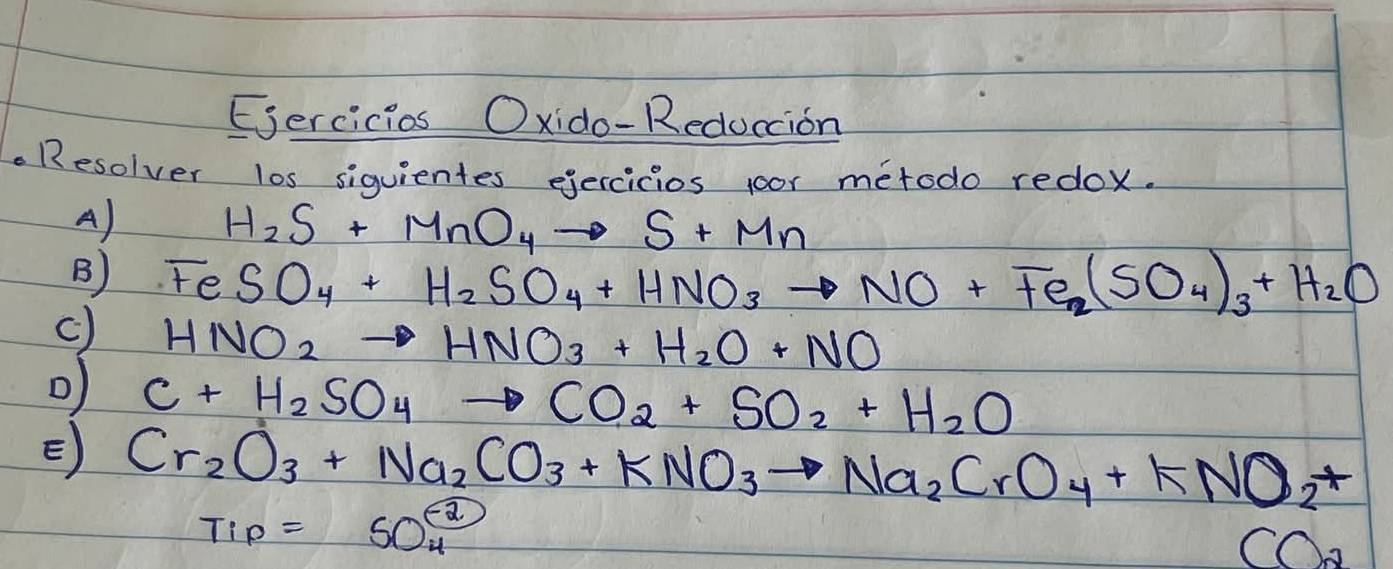 Ejercicios Oxido-Reducción
• Resolver los siguientes ejercicios por método redox.
A) H₂S + MnO₄ → S + Mn
B) FeSO₄ + H₂SO₄ + HNO₃ → NO + Fe₂(SO₄)₃ + H₂O
C) HNO₂ → HNO₃ + H₂O + NO
D) C + H₂SO₄ → CO₂ + SO₂ + H₂O
E) Cr₂O₃ + Na₂CO₃ + KNO₃ → Na₂CrO₄ + KNO₂ +
CO₂
Tip = SO₄⁻²